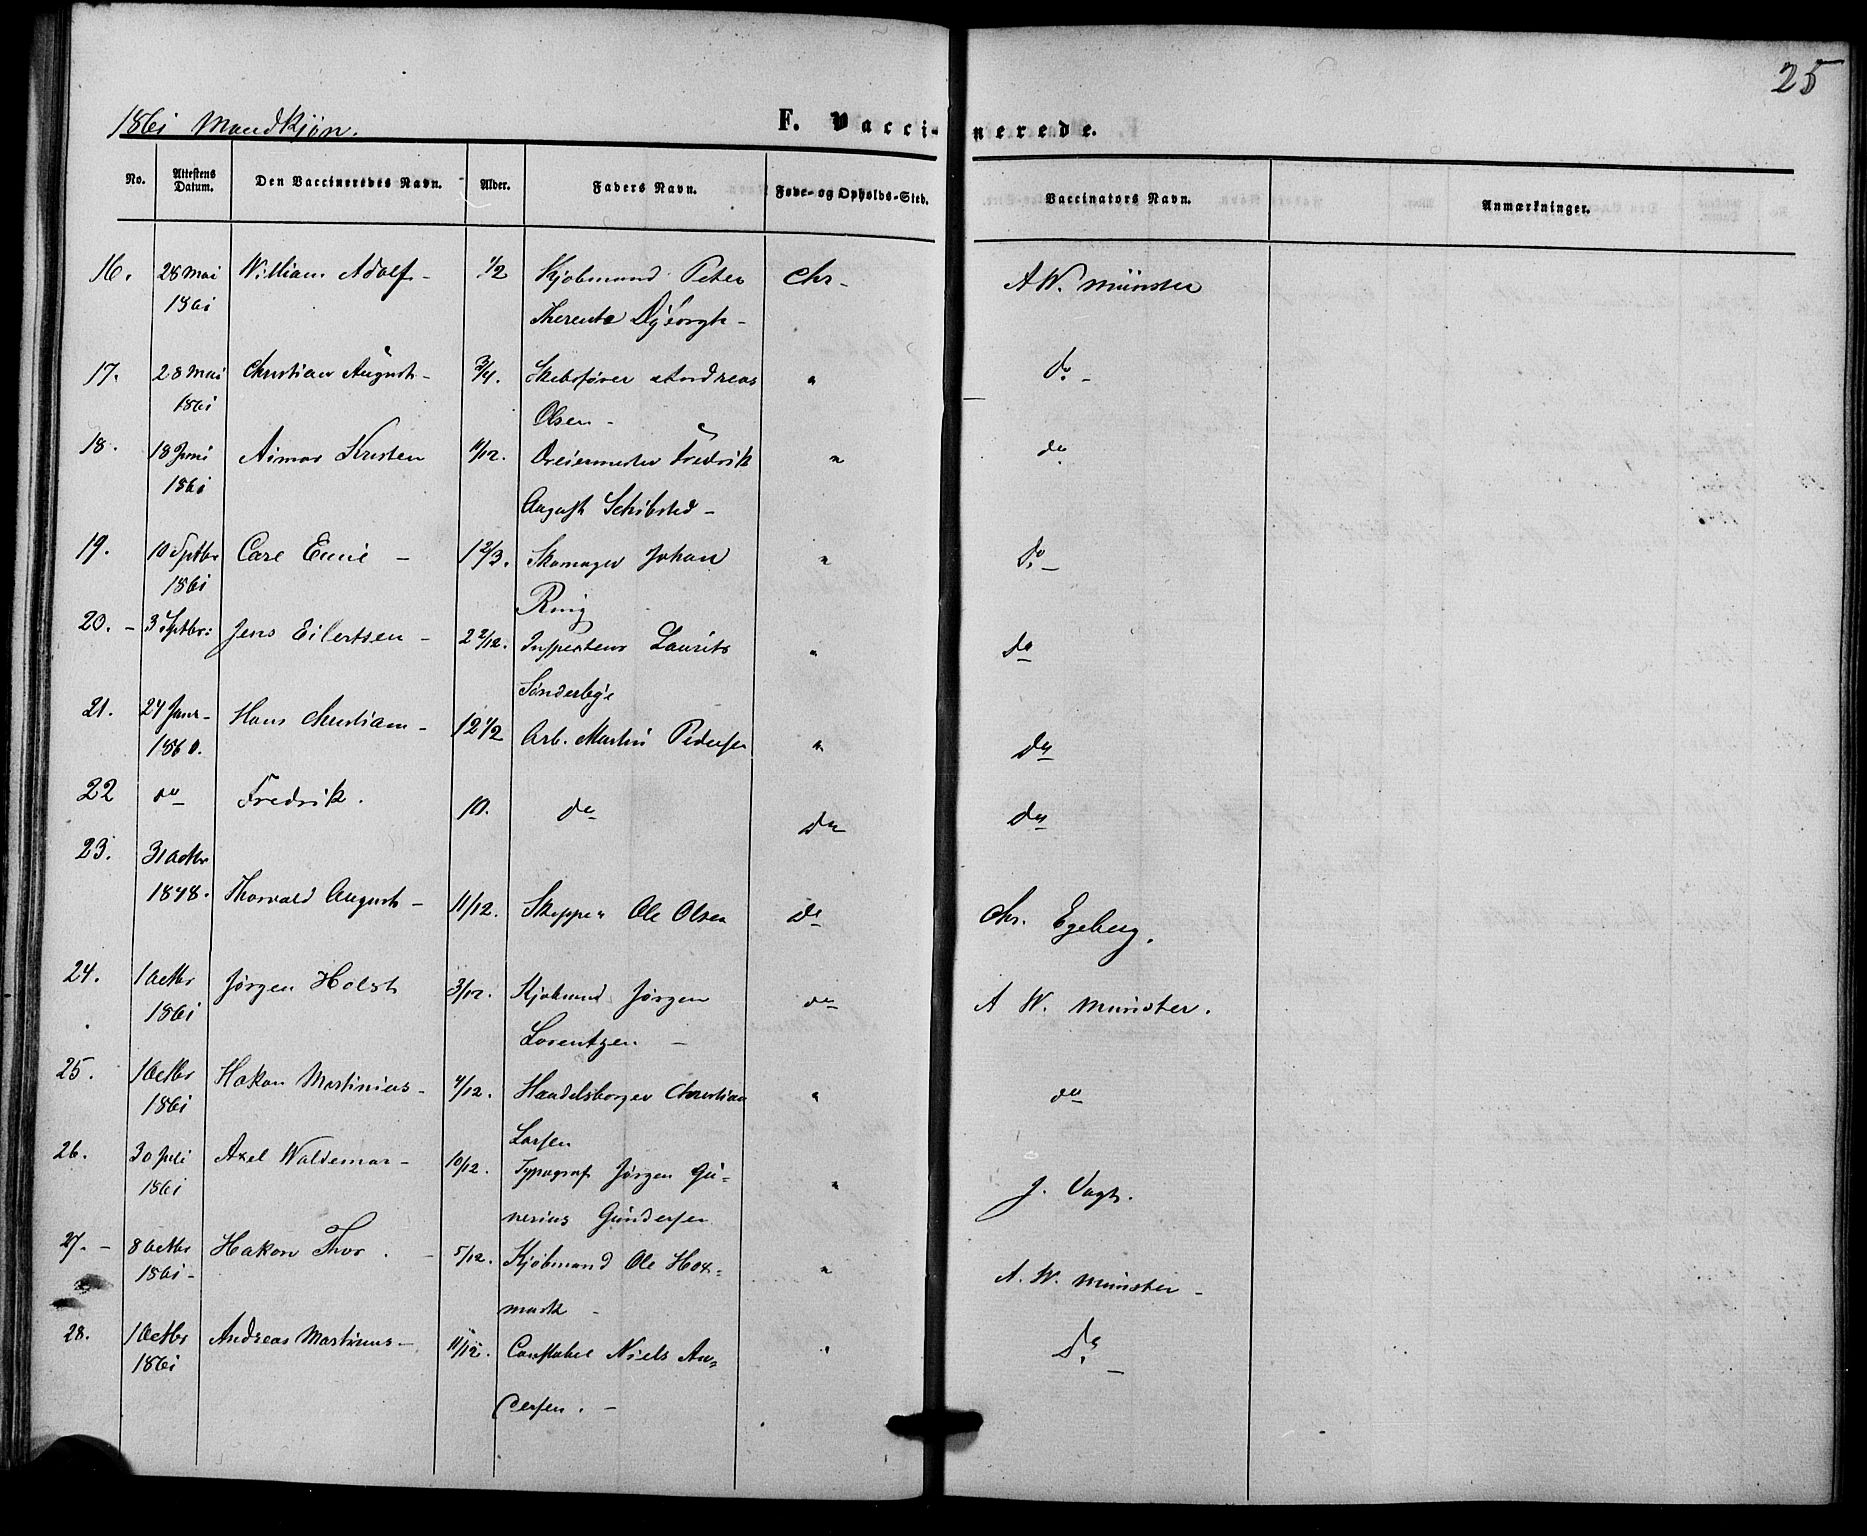 25
1861 Mandkjøn.
F. Vaccinerede.
No. Attestens Datum. Den Vaccineredes Navn. Alder. Faders Navn. Føde- og Opholds-Sted. Vaccinators Navn. Anmærkninger.
16. 28 Mai William Adolf - 1/2 Kjøbmand Peter Chr - A W. Münster
1861
17. 28 Mai Christian August - 3/4. Andreas " do -
1861 Olsen -
18. 18 Juni Aimar Kristen 4/12. Dreiermester Fredrik " do
1861 August Schibsted -
19. 10 Septbr Carl Emil - 1 2/3. Skomager Johan " do -
1861 Ring
20. - 3 Septbr: Jens Eilertsen - 2 2/12. Inspecteur Laurits " do
Sønderbye
21. 24 Janr - Hans Christian - 12 1/2 Arb. Martin Pedersen " do
1860.
22 do Fredrik. 10. do do do
23. 31 Octbr
1848. Thorvald August - 11/12. Skipper Ole Olsen do Chr. Egeberg.
24. 1 Octbr Jørgen Holst 3/12. Kjøbmand Jørgen do A W. Münster.
1861 Lorentzen -
25. 1 Octbr Hakon Martinius - 4/12. Handelsborger Christian " do
1861 Larsen
26. 30 Juli Axel Waldemar - 10/12. Typograf Jørgen Gu- " J. Vogt.
1861 nerius Gundersen
27. - 8 Octbr Hakon Thor. - 5/12. Kjøbmand Ole Hox- " A. W. Münster -
1861 - mark -
28. 1 Octbr Andreas Martinus - 11/12. Constabel Niels An- " do -
1861 dersen. -